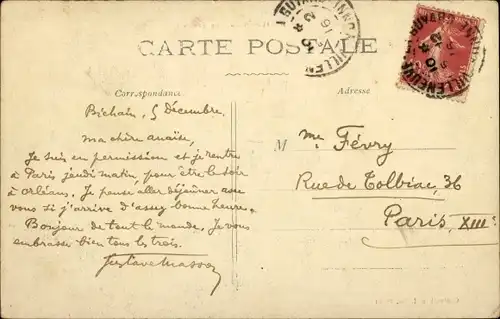 CARTE POSTALE
Correspondance
Adresse
Bichain, 5 Décembre.
ma chère anaïse,
Je suis en permission et je rentre
à Paris jeudi matin, pour être le soir
à Orléans. Je pense aller déjeuner avec
vous si j'arrive d'assez bonne heure.
Bonjour de tout le monde. Je vous
embrasse bien tous les trois.
Gustave Masson
M me Févry
Rue de Tolbiac, 36
Paris XIIIe